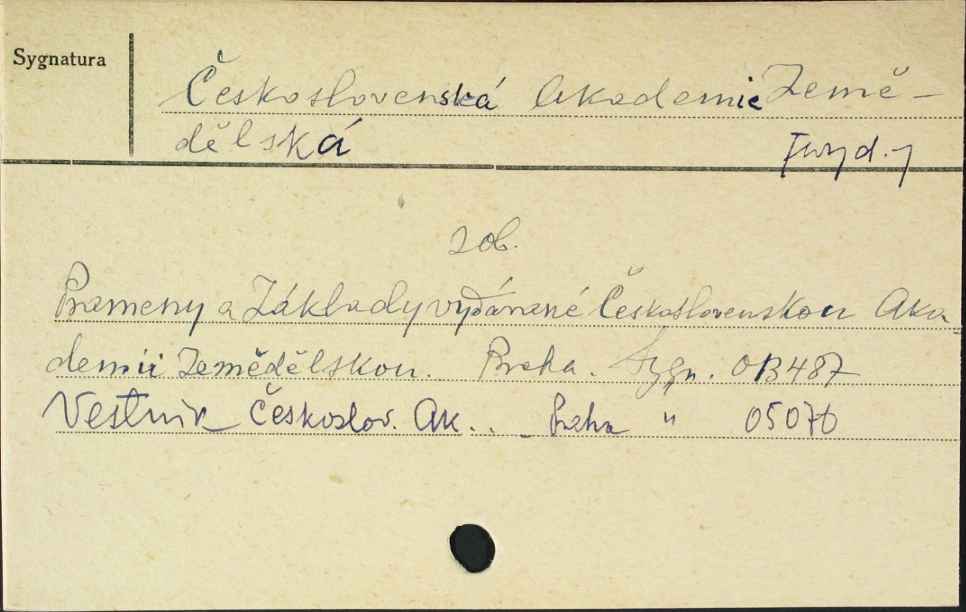 Sygnatura
Československá Akademie Země-
dělská
[wyd.]
zob.
Prameny a Základy vydávané Československou Aka
demii Zemědělskou. Praha. Sygn. OB487
Vestnik Českoslov. Ak.. - Praha " 05076